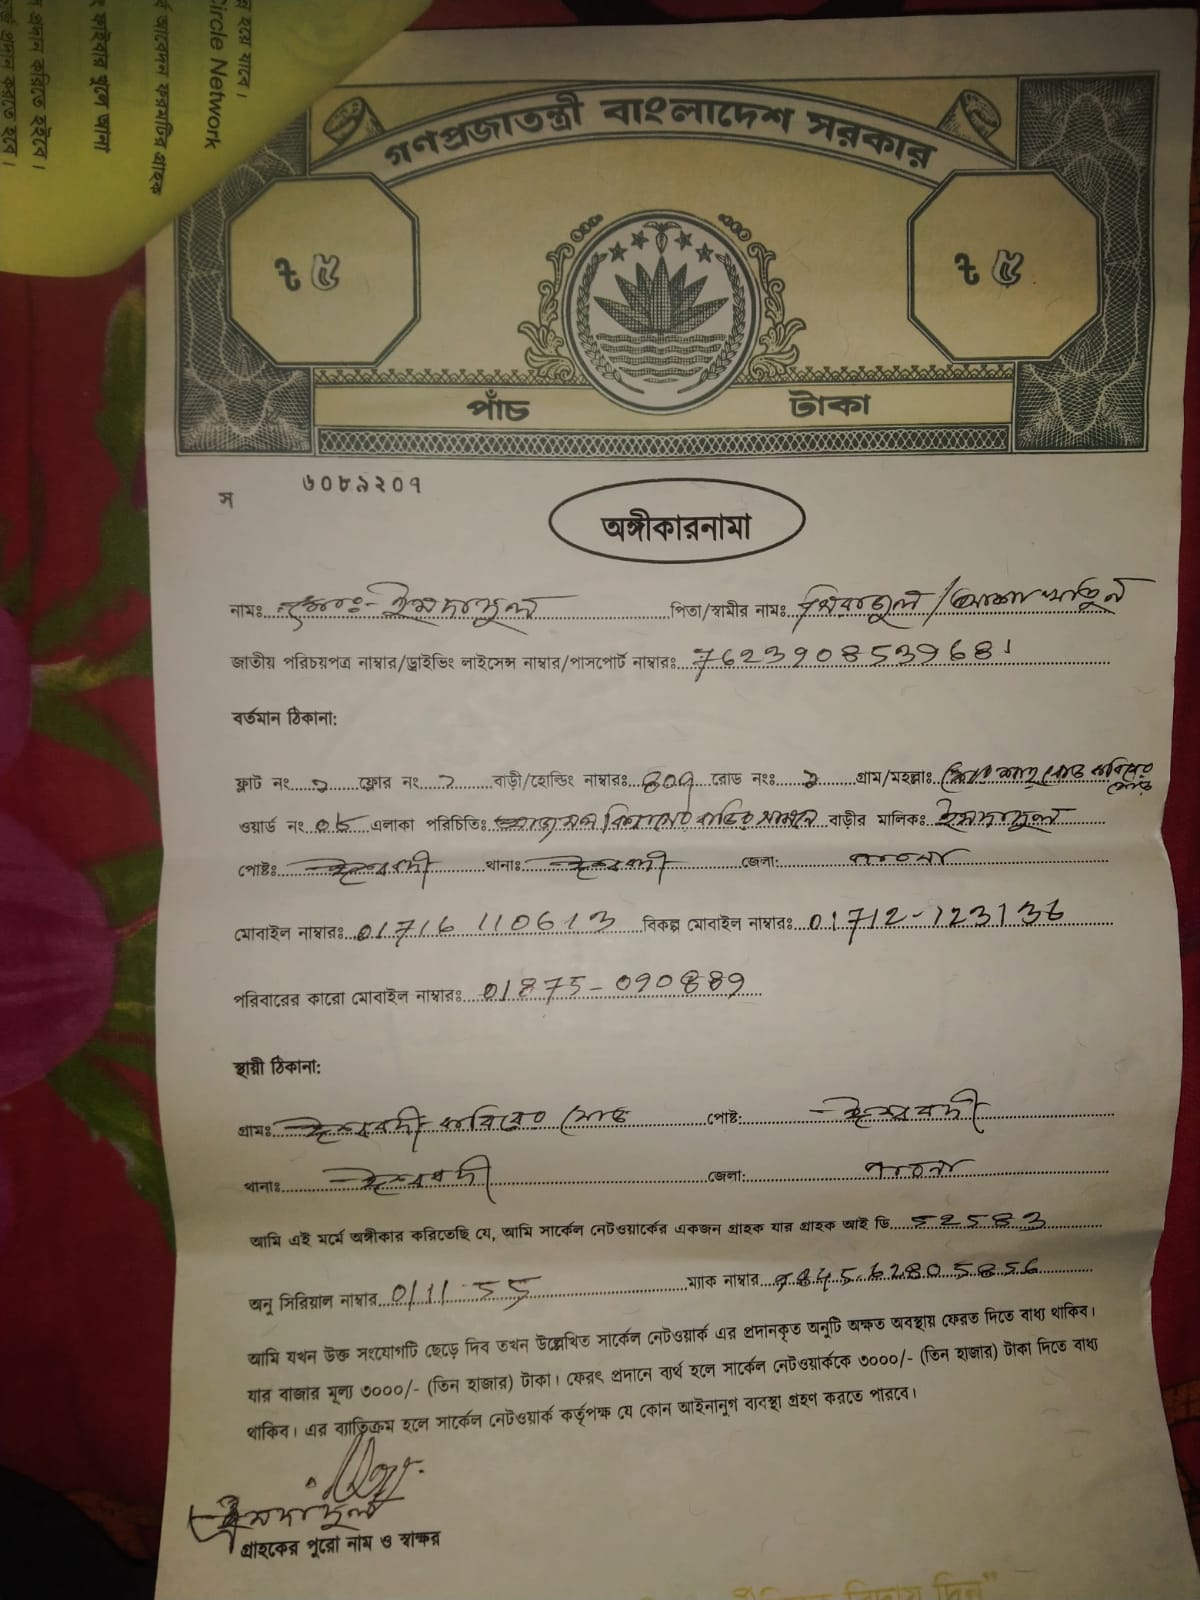 হয়ে যাবে।
ircle Network
আবেদন ফরমটির গ্রাহক
ফাইবার খুলে আলা
প্রদান করিতে হইবে।
প্রদান করতে হবে।
গণপ্রজাতন্ত্রী বাংলাদেশ সরকার
৳ ৫
৳ ৫
পাঁচ টাকা
স ৬০৮৯২০৭
অঙ্গীকারনামা
নামঃ মোঃ- ইমদাদুল পিতা/স্বামীর নামঃ
জাতীয় পরিচয়পত্র নাম্বার/ড্রাইভিং লাইসেন্স নাম্বার/পাসপোর্ট নাম্বারঃ 7623908539681
বর্তমান ঠিকানা:
ফ্লাট নং ফ্লোর নং বাড়ী/হোল্ডিং নাম্বারঃ রোড নংঃ গ্রাম/মহল্লাঃ
ওয়ার্ড নং এলাকা পরিচিতিঃ বাড়ীর মালিকঃ ইমদাদুল
পোষ্টঃ ঈশ্বরদী থানাঃ ঈশ্বরদী জেলা: পাবনা
মোবাইল নাম্বারঃ 01716 110613 বিকল্প মোবাইল নাম্বারঃ 01712-123136
পরিবারের কারো মোবাইল নাম্বারঃ 01875-090889
স্থায়ী ঠিকানা:
গ্রামঃ ঈশ্বরদী পোষ্ট: ঈশ্বরদী
থানাঃ ঈশ্বরদী জেলা: পাবনা
আমি এই মর্মে অঙ্গীকার করিতেছি যে, আমি সার্কেল নেটওয়ার্কের একজন গ্রাহক যার গ্রাহক আই ডি 52583
অনু সিরিয়াল নাম্বার 0111 55 ম্যাক নাম্বার
আমি যখন উক্ত সংযোগটি ছেড়ে দিব তখন উল্লেখিত সার্কেল নেটওয়ার্ক এর প্রদানকৃত অনুটি অক্ষত অবস্থায় ফেরত দিতে বাধ্য থাকিব।
যার বাজার মূল্য ৩০০০/- (তিন হাজার) টাকা। ফেরৎ প্রদানে ব্যর্থ হলে সার্কেল নেটওয়ার্ককে ৩০০০/- (তিন হাজার) টাকা দিতে বাধ্য
থাকিব। এর ব্যাতিক্রম হলে সার্কেল নেটওয়ার্ক কর্তৃপক্ষ যে কোন আইনানুগ ব্যবস্থা গ্রহণ করতে পারবে।
ইমদাদুল
গ্রাহকের পুরো নাম ও স্বাক্ষর